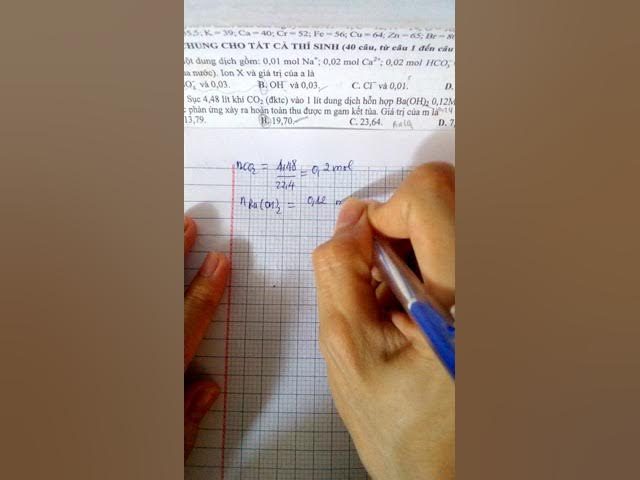 K = 39; Ca = 40; Cr = 52; Fe = 56; Cu = 64; Zn = 65; Br = 80
CHUNG CHO TẤT CẢ THÍ SINH (40 câu, từ câu 1 đến câu
dung dịch gồm: 0,01 mol Na⁺; 0,02 mol Ca²⁺; 0,02 mol HCO₃⁻
nước). Ion X và giá trị của a là
và 0,03. B. OH⁻ và 0,03. C. Cl⁻ và 0,01. D.
Sục 4,48 lít khí CO₂ (đktc) vào 1 lít dung dịch hỗn hợp Ba(OH)₂ 0,12M
phản ứng xảy ra hoàn toàn thu được m gam kết tủa. Giá trị của m là
13,79. B. 19,70. C. 23,64. D. 7,
nCO₂ = 4,48 / 22,4 = 0,2 mol
n Ba(OH)₂ = 0,12 m